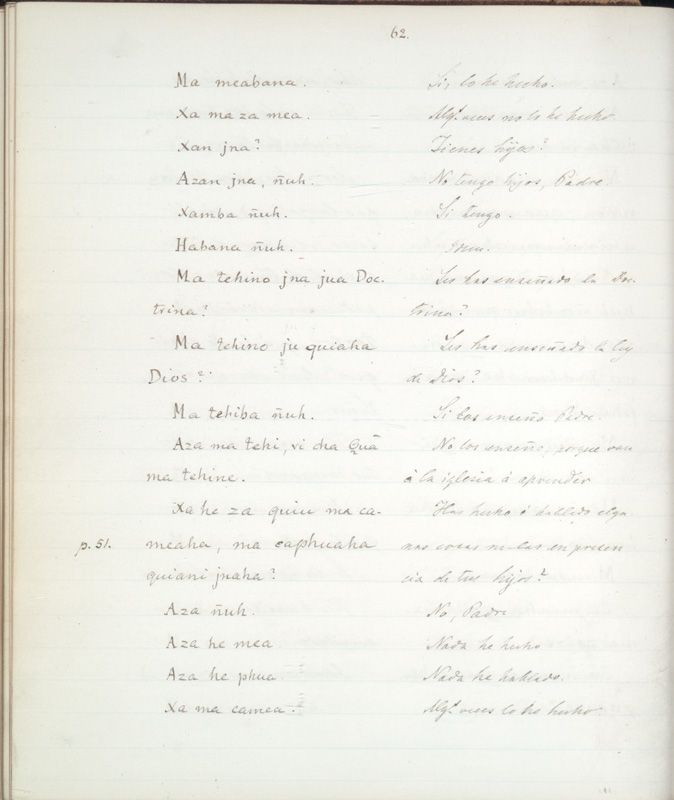 62.
Ma meabana. Si, lo he hecho.
Xa ma za mea. Algs. veces no lo he hecho.
Xan jna? Tienes hijos?
Azan jna, ñuh. No tengo hijos, Padre.
Xamba ñuh. Si tengo.
Habana ñuh.
Ma tehino jna jua Doc- Les has enseñado la Doc-
trina? trina?
Ma tehino ju quiaha Les has enseñado la ley
Dios? de Dios?
Ma tehiba ñuh. Si los enseño Padre.
Aza ma tehi, vi cha Quā No los enseño, porque van
ma tehine. á la iglesia á aprender
Xa he za quiu ma ca- Has hecho ó hablado algu-
p. 51. meaha, ma caphuaha nas cosas malas en presen
quiani jnaha? cia de tus hijos?
Aza ñuh. No, Padre
Aza he mea Nada he hecho
Aza he phua Nada he hablado.
Xa ma camea. Algs. veces lo he hecho.